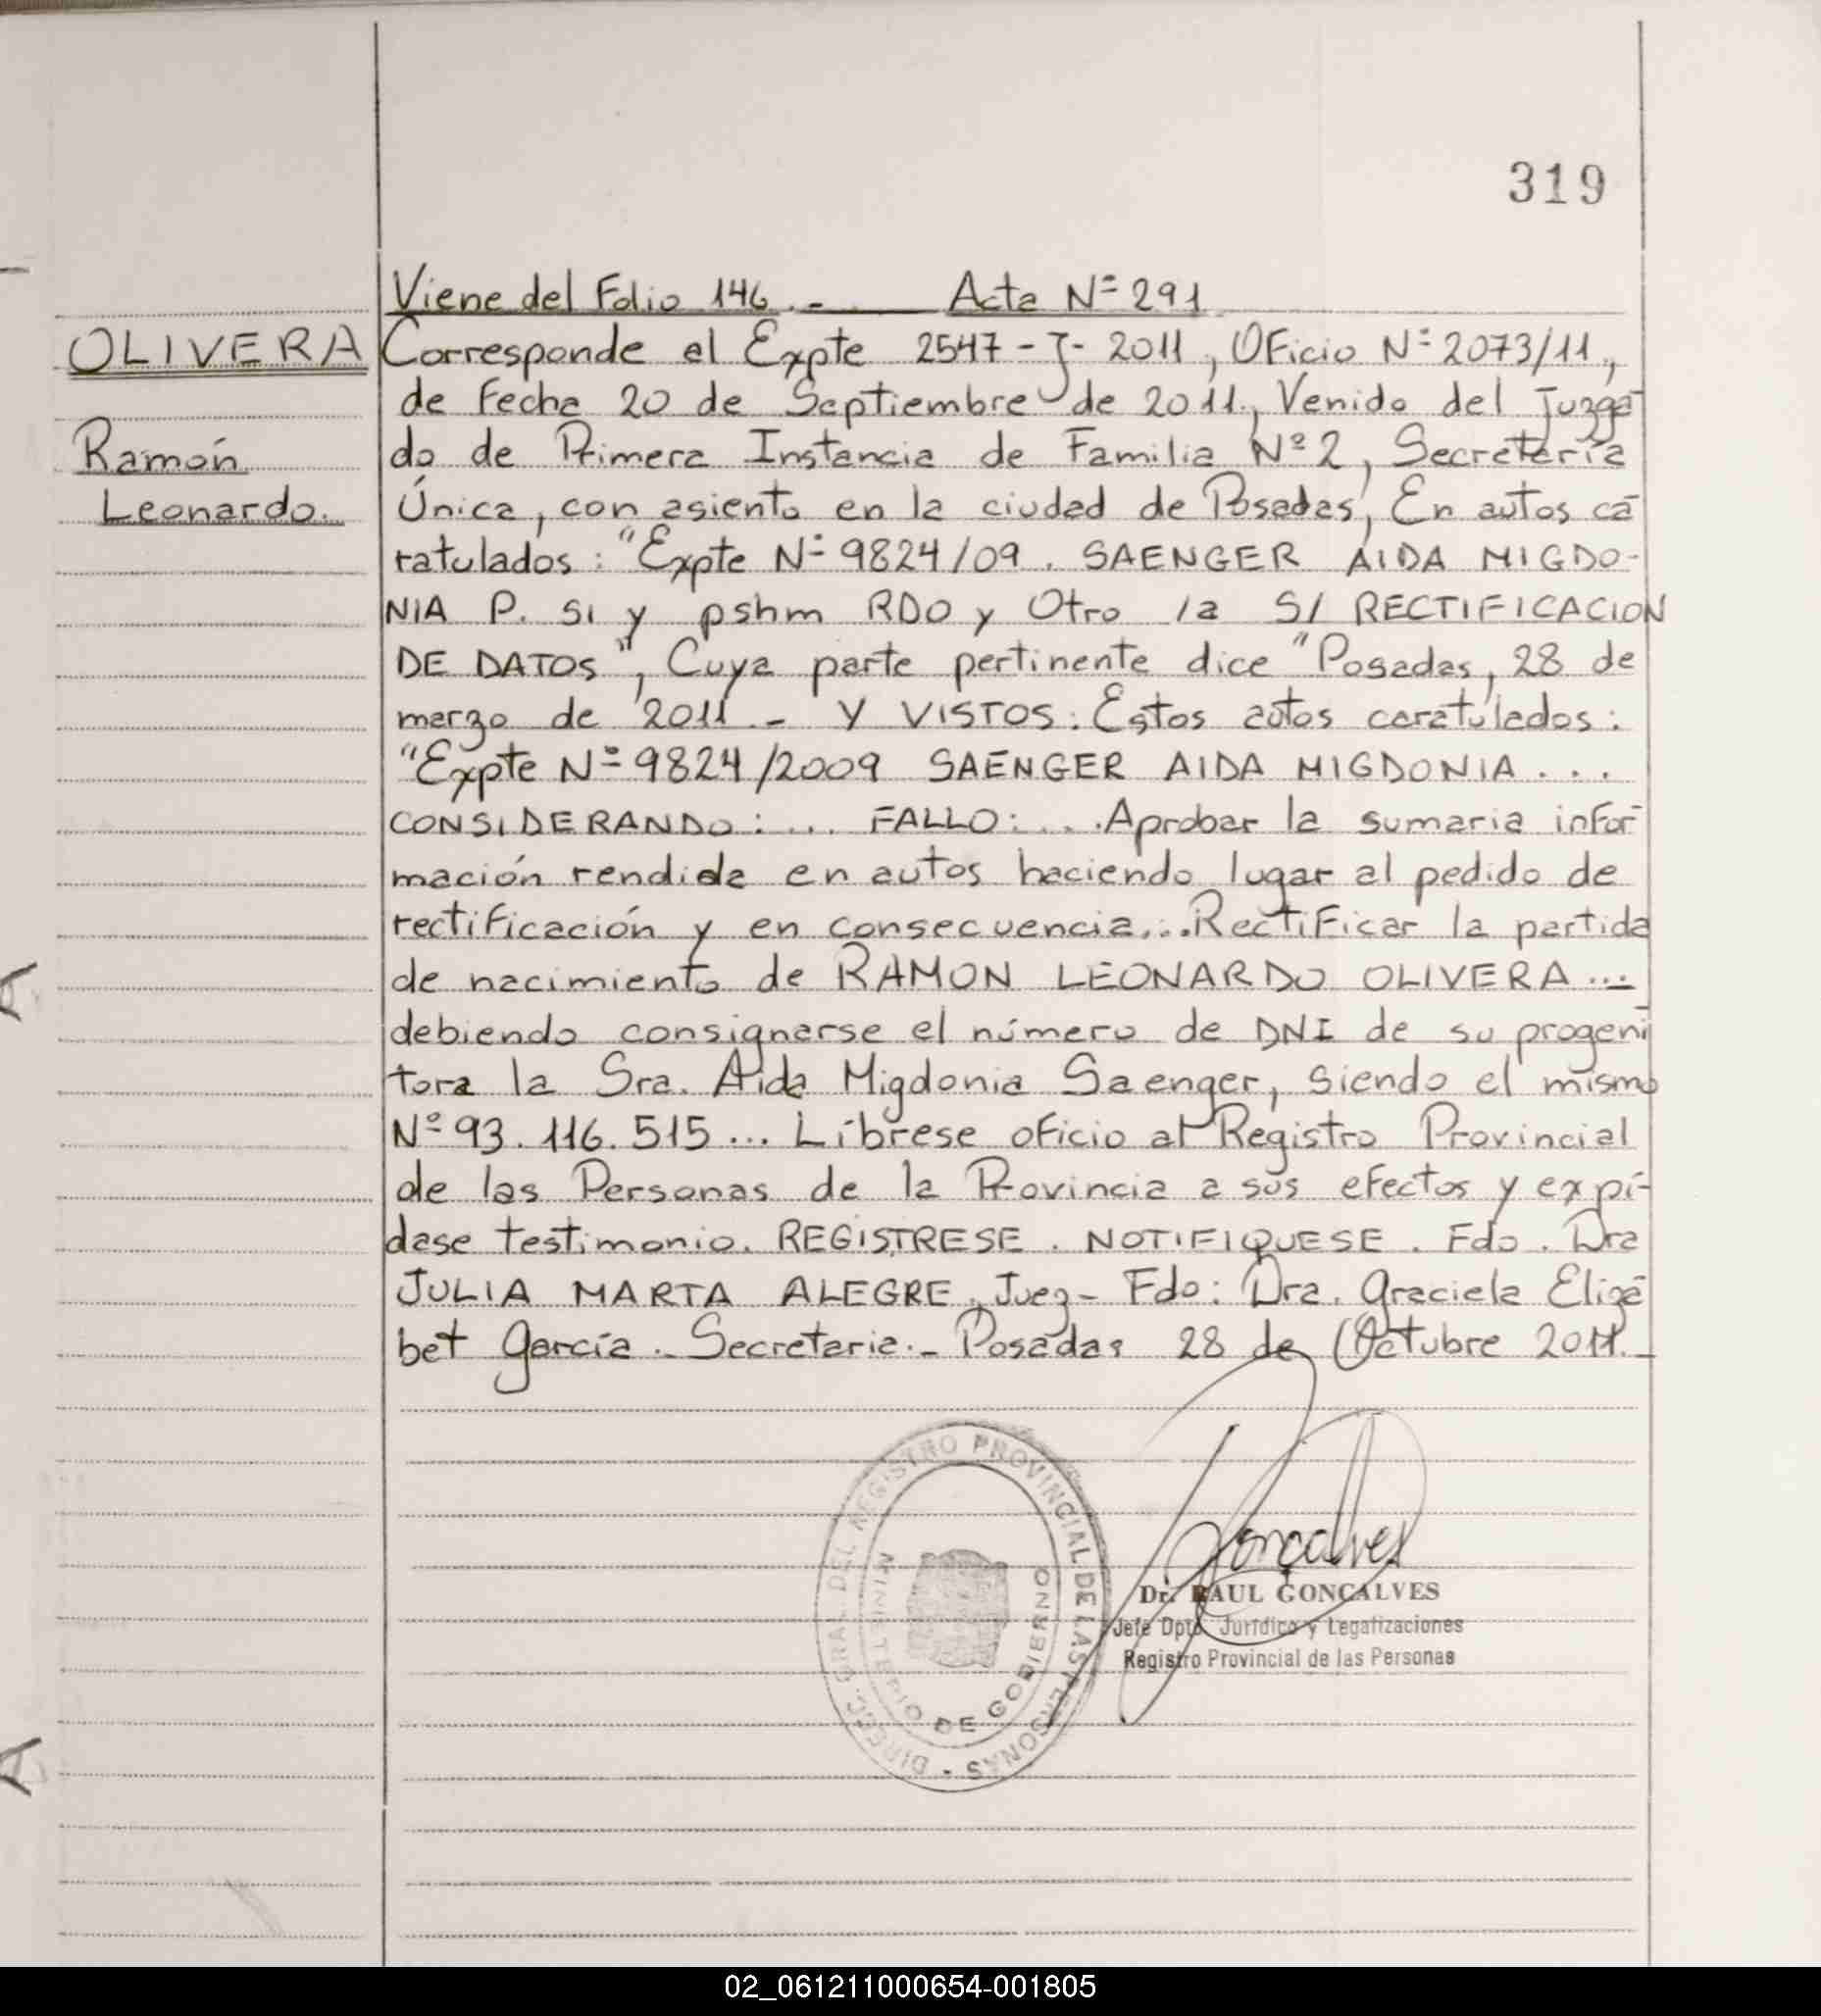 319
Viene del Folio 146.- Acta Nº 291
OLIVERA
Ramón
Leonardo.
Corresponde al Expte 2547-J-2011, Oficio Nº 2073/11,
de Fecha 20 de Septiembre de 2011, Venido del Juzga
do de Primera Instancia de Familia Nº2, Secretaría
Única, con asiento en la ciudad de Posadas, En autos ca
ratulados: "Expte Nº 9824/09. SAENGER AIDA MIGDO-
NIA P. SI y pshm RDO y Otro /a S/ RECTIFICACION
DE DATOS", Cuya parte pertinente dice "Posadas, 28 de
marzo de 2011.- Y VISTOS: Estos autos caratulados:
"Expte Nº 9824/2009 SAENGER AIDA MIGDONIA...
CONSIDERANDO:... FALLO:... Aprobar la sumaria infor
mación rendida en autos haciendo lugar al pedido de
rectificación y en consecuencia... Rectificar la partida
de nacimiento de RAMON LEONARDO OLIVERA...
debiendo consignarse el número de DNI de su progeni
tora la Sra. Aida Migdonia Saenger, siendo el mismo
Nº 93.116.515... Líbrese oficio al Registro Provincial
de las Personas de la Provincia a sus efectos y expí-
dase testimonio. REGISTRESE. NOTIFIQUESE. Fdo. Dra
JULIA MARTA ALEGRE, Juez- Fdo: Dra. Graciela Eliza
bet García. Secretaria.- Posadas 28 de Octubre 2011.-
DIREC. GRAL. DEL REGISTRO PROVINCIAL DE LAS PERSONAS -
MINISTERIO DE GOBIERNO
Gonçalves
Dr. RAUL GONÇALVES
Jefe Dpto. Jurídico y Legalizaciones
Registro Provincial de las Personas
02_061211000654-001805